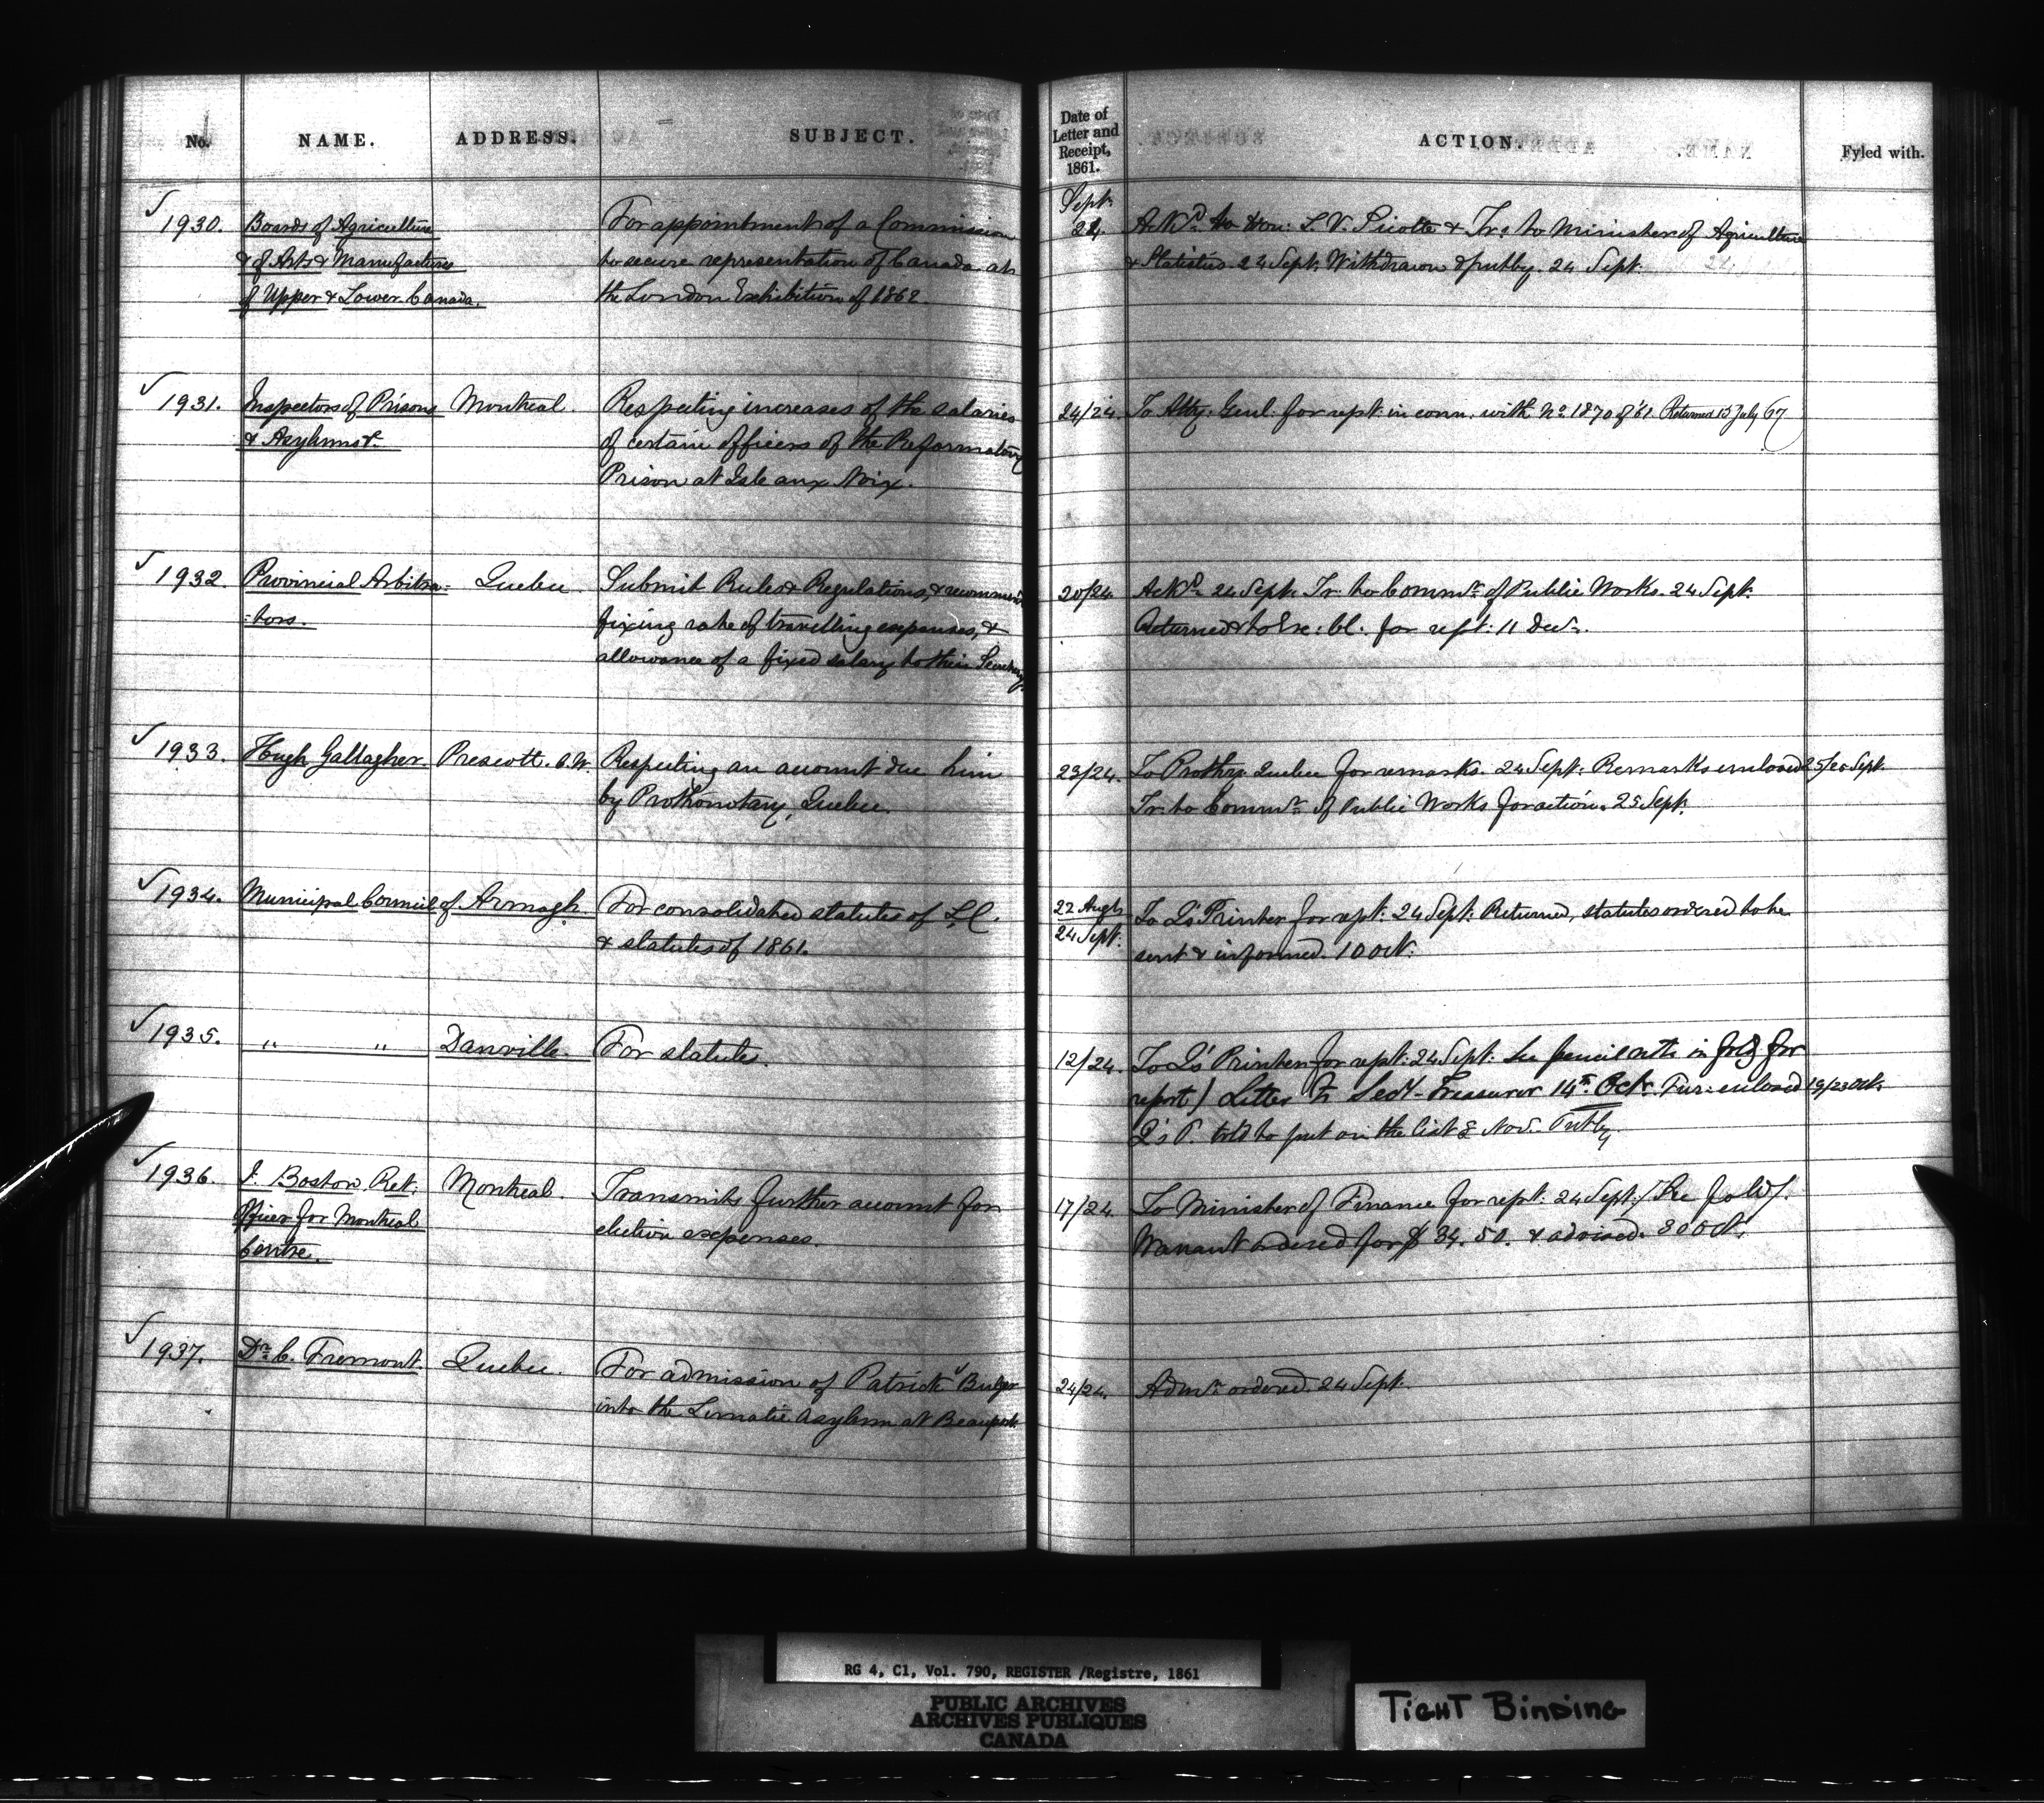 No. NAME. ADDRESS. SUBJECT. Date of Letter and Receipt, 1861. ACTION. Fyled with.
Sept.
1930. Boards of Agriculture For appointment of a Commission 24. Ackd. to Hon: L. V. Sicotte & Tr: to Minister of Agriculture
& of Arts & Manufactures to secure representation of Canada at & Statistics. 24 Sept. Withdrawn & putby. 24 Sept.
of Upper & Lower Canada. the London Exhibition of 1862.
1931. Inspectors of Prisons Montreal. Respecting increases of the salaries 24/24. To Atty: Genl: for rept: in conn. with No. 1870 of '61 Returned 15 July 67
& Asylums &c. of certain officers of the Reformatory
Prison at Isle aux Noix.
1932. Provincial Arbitra- Quebec. Submit Rules & Regulations, & recommend 20/24. Ackd. 24 Sept. Tr: to Commr. of Public Works. 24 Sept.
-tors. fixing rate of travelling expenses, & Returned & to Exe: Cl. for rept: 11 Decr.
allowance of a fixed salary to their Secretary
1933. Hugh Gallagher. Prescott. C.W. Respecting an account due him 23/24. To Prothy: Quebec for remarks. 24 Sept: Remarks enclosed 25/25 Sept.
by Prothonotary, Quebec. Tr: to Commr. of Public Works for action. 25 Sept.
1934. Municipal Council of Armagh. For consolidated statutes of L.C. 22 Augt. To Q's Printer for rept: 24 Sept: Returned, statutes ordered to be
& statutes of 1861. 24 Sept. sent & informed. 10 Oct.
1935. " " Danville. For statutes. 12/24. To Q's Printer for rept: 24 Sept: See pencil note in fold for
report) Letter to Secy-Treasurer 14th. Oct. Fur: enclosed 19/23 Oct.
Q's P. told to put on the list 8 Nov. Putby
1936. J. Boston, Ret: Montreal. Transmits further account for 17/24 To Minister of Finance for rept: 24 Sept: (See fold).
Officer for Montreal election expenses. Warrant ordered for $34.50. & advised. 30 Oct.
Centre.
1937. Dr. C. Fremont. Quebec. For admission of Patrick Bulger 24/24. Admn. ordered. 24 Sept.
into the Lunatic Asylum at Beauport.
RG 4, C1, Vol. 790, REGISTER /Registre, 1861
PUBLIC ARCHIVES
ARCHIVES PUBLIQUES
CANADA
TIGHT BINDING